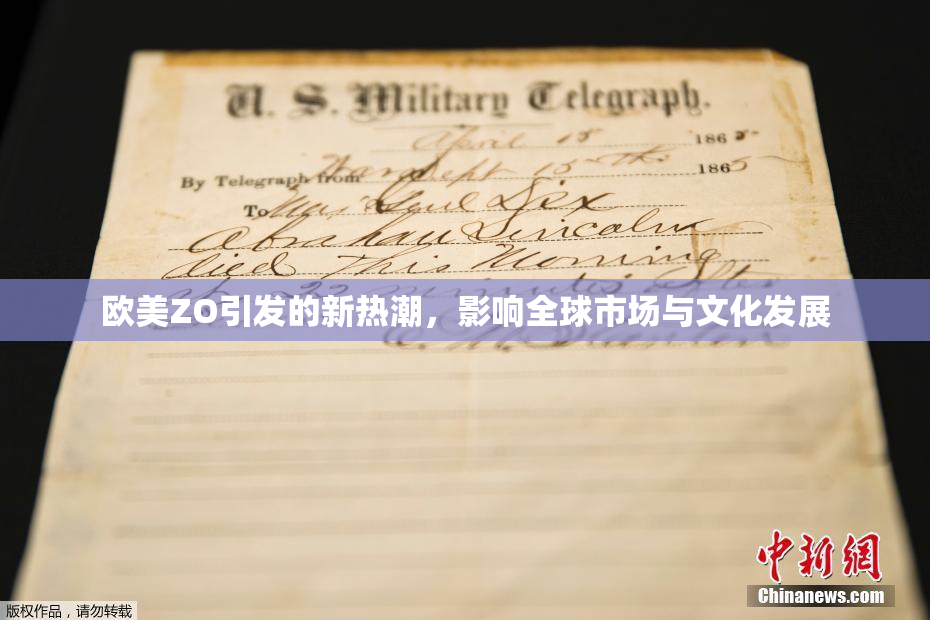 U. S. Military Telegraph.
April 15 1865
By Telegraph from War Dept 15th 1865
To Maj Genl Dix
Abraham Lincoln
died This Morning
at 22 minutes after
欧美ZO引发的新热潮，影响全球市场与文化发展
E. M. Stanton
中新网
Chinanews.com
版权作品，请勿转载